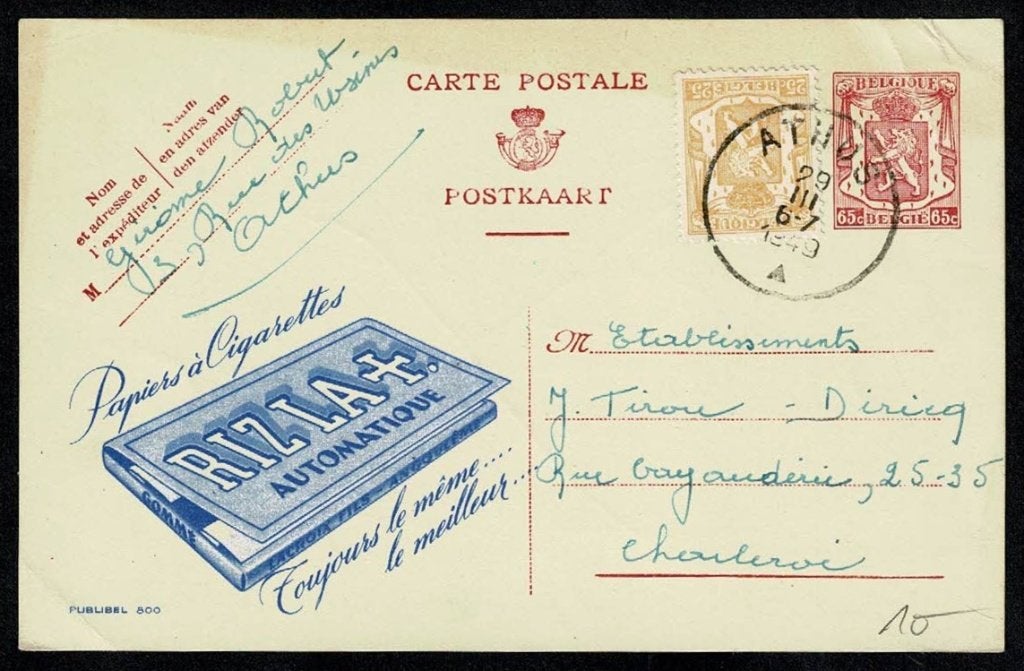 Naam
en adres van
den afzender
Nom
et adresse de
l'expéditeur
M Girome Robert
3, Rue des Usines
Athus
CARTE POSTALE
POSTKAART
25c 25c
BELGIQUE
BELGIQUE
65c BELGIË 65c
ATHUS
29
III
6-7
1949
A
Papiers à Cigarettes
RIZ LA +.
AUTOMATIQUE
GOMMÉ
LACROIX FILS - ANGOULÊME
Toujours le même....
le meilleur...
PUBLIBEL 800
M Etablissements
J. Tirou - Diricq
Rue Cayauderie, 25-35
Charleroi
10